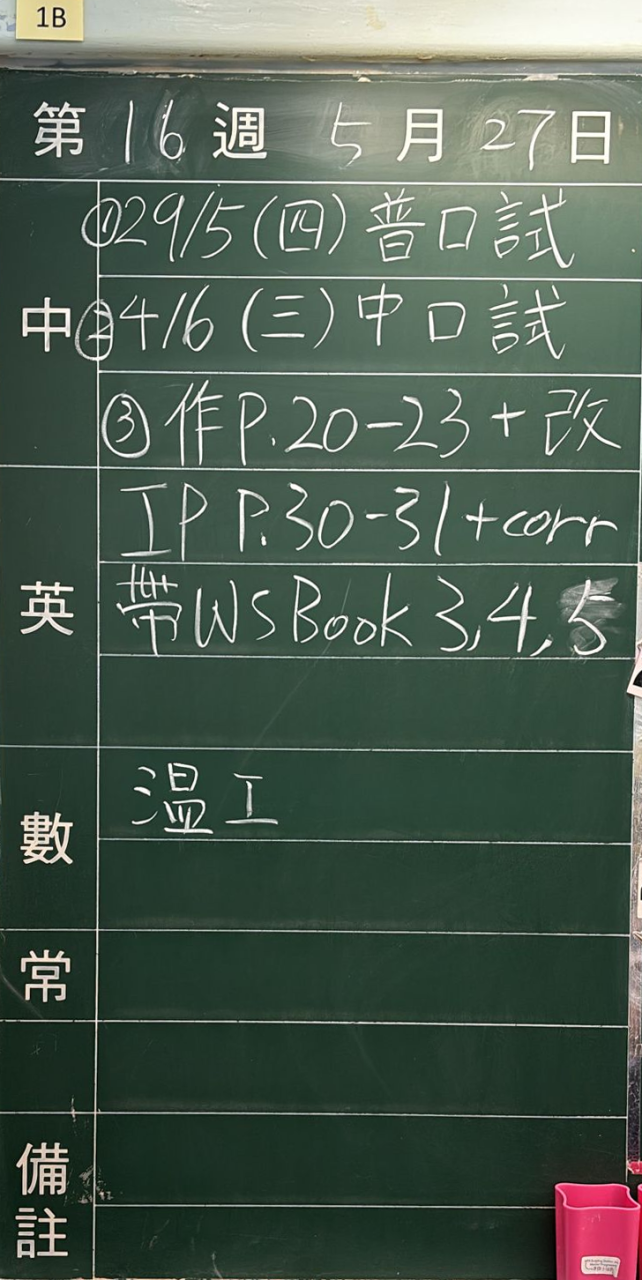 1B
第16週 5月27日
中
①29/5(四)普口試
②4/6(三)中口試
③作P.20-23+改
英
IP P.30-31+corr
帶WS Book 3,4,5
數
溫工
常
備註